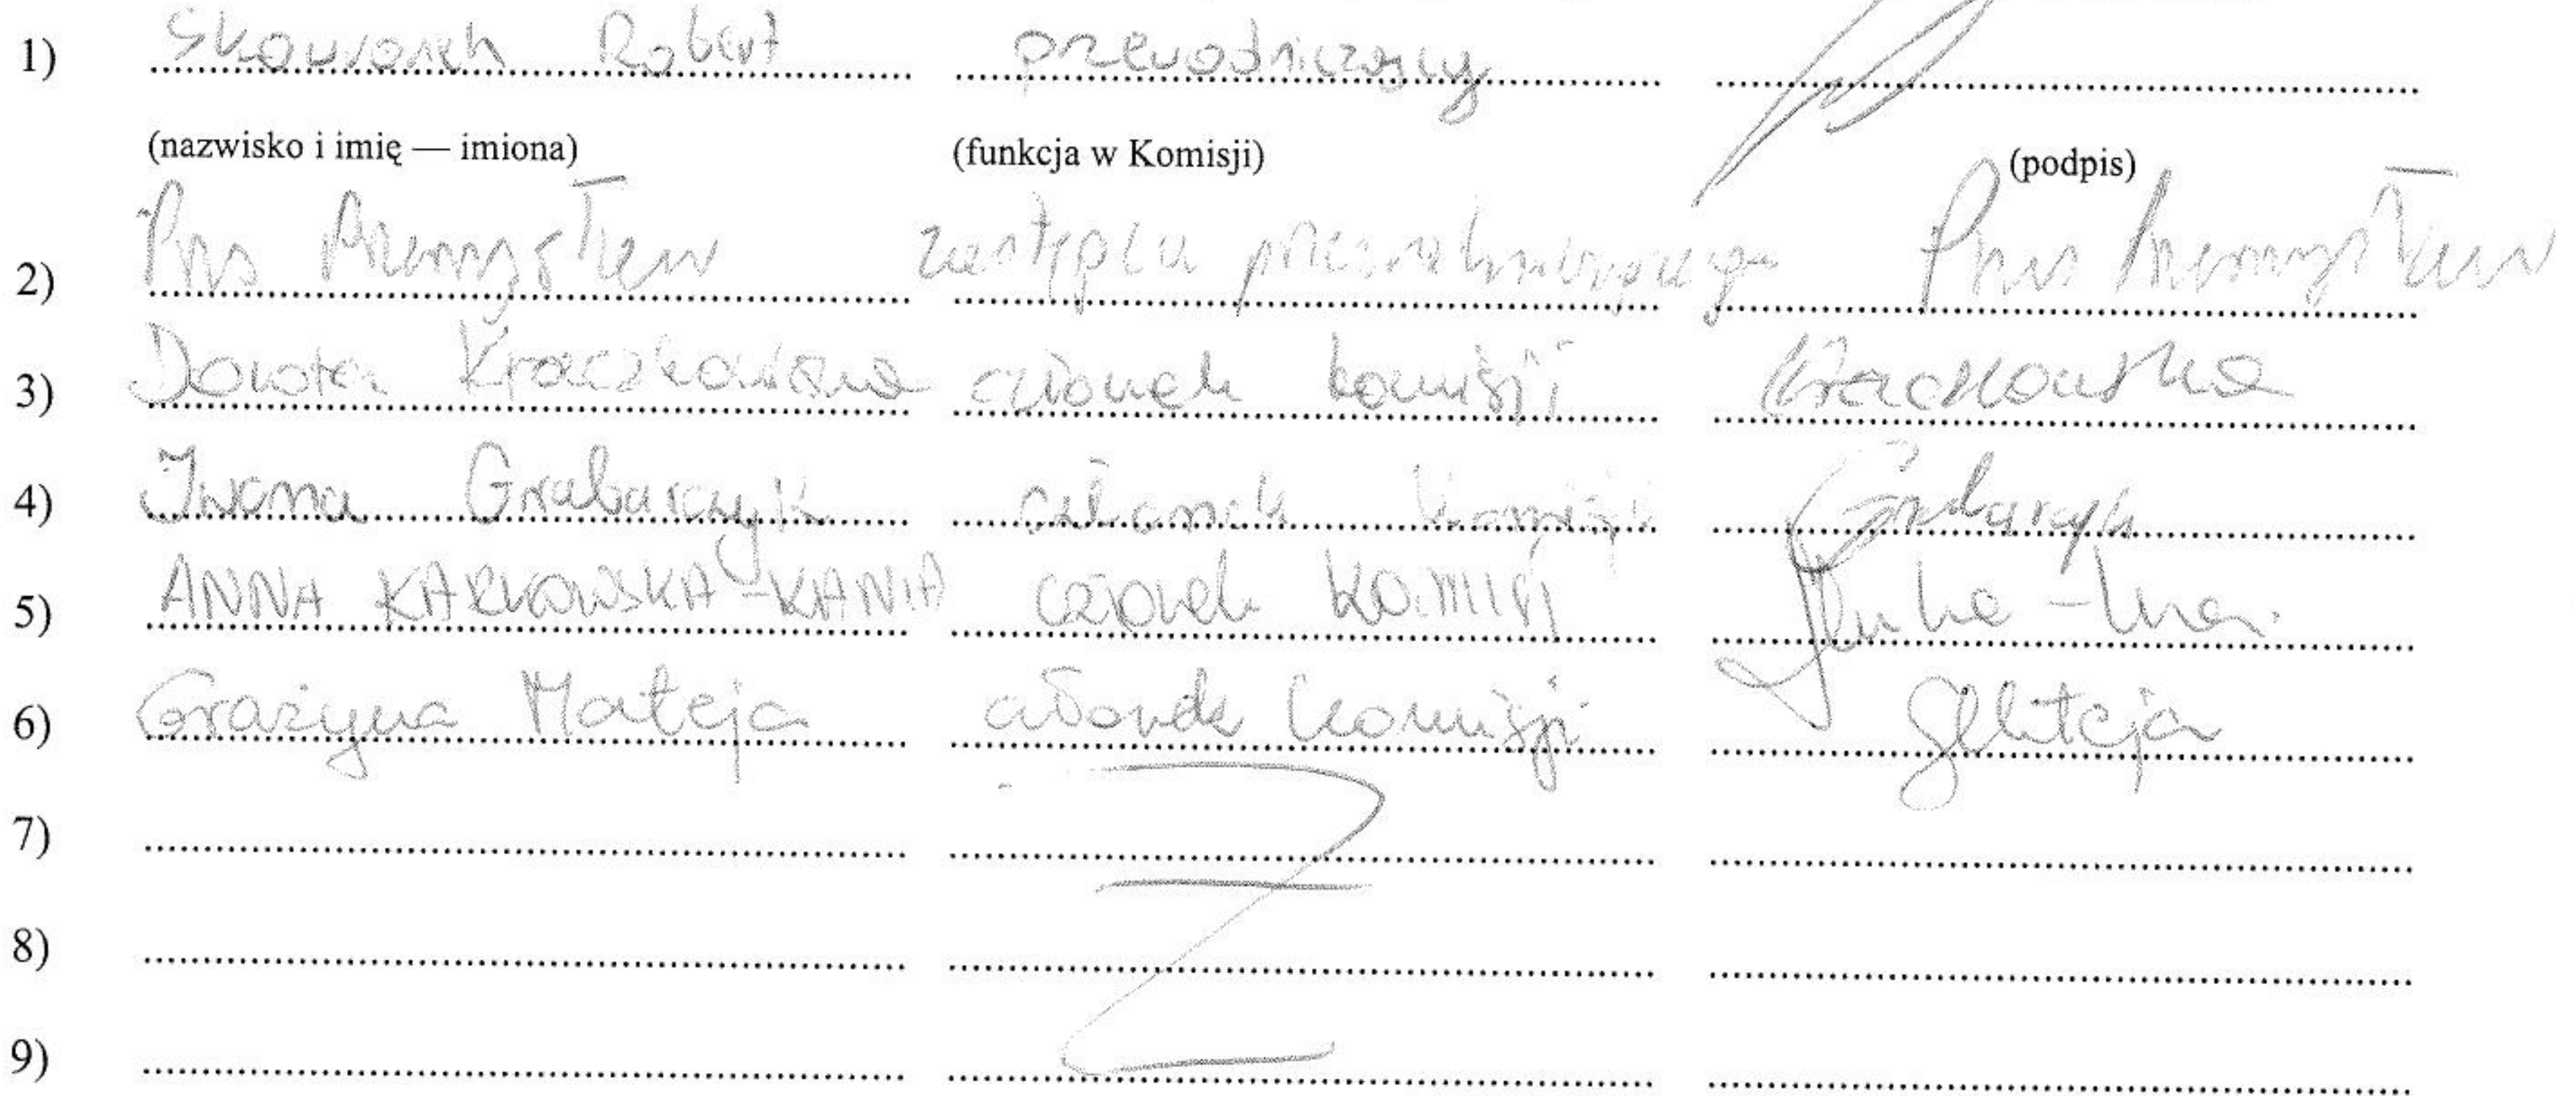 1) Skowronek Robert przewodniczący
(nazwisko i imię — imiona) (funkcja w Komisji) (podpis)
2) Przemysław zastępca przewodniczącego Przemysław
3) Dorota Kraczkowska członek komisji Kraczkowska
4) Iwona Grabarczyk członek komisji Grabarczyk
5) ANNA KARKOWSKA-KANIA członek KOMISJI
6) Grażyna Mateja członek komisji Mateja
7)
8)
9)